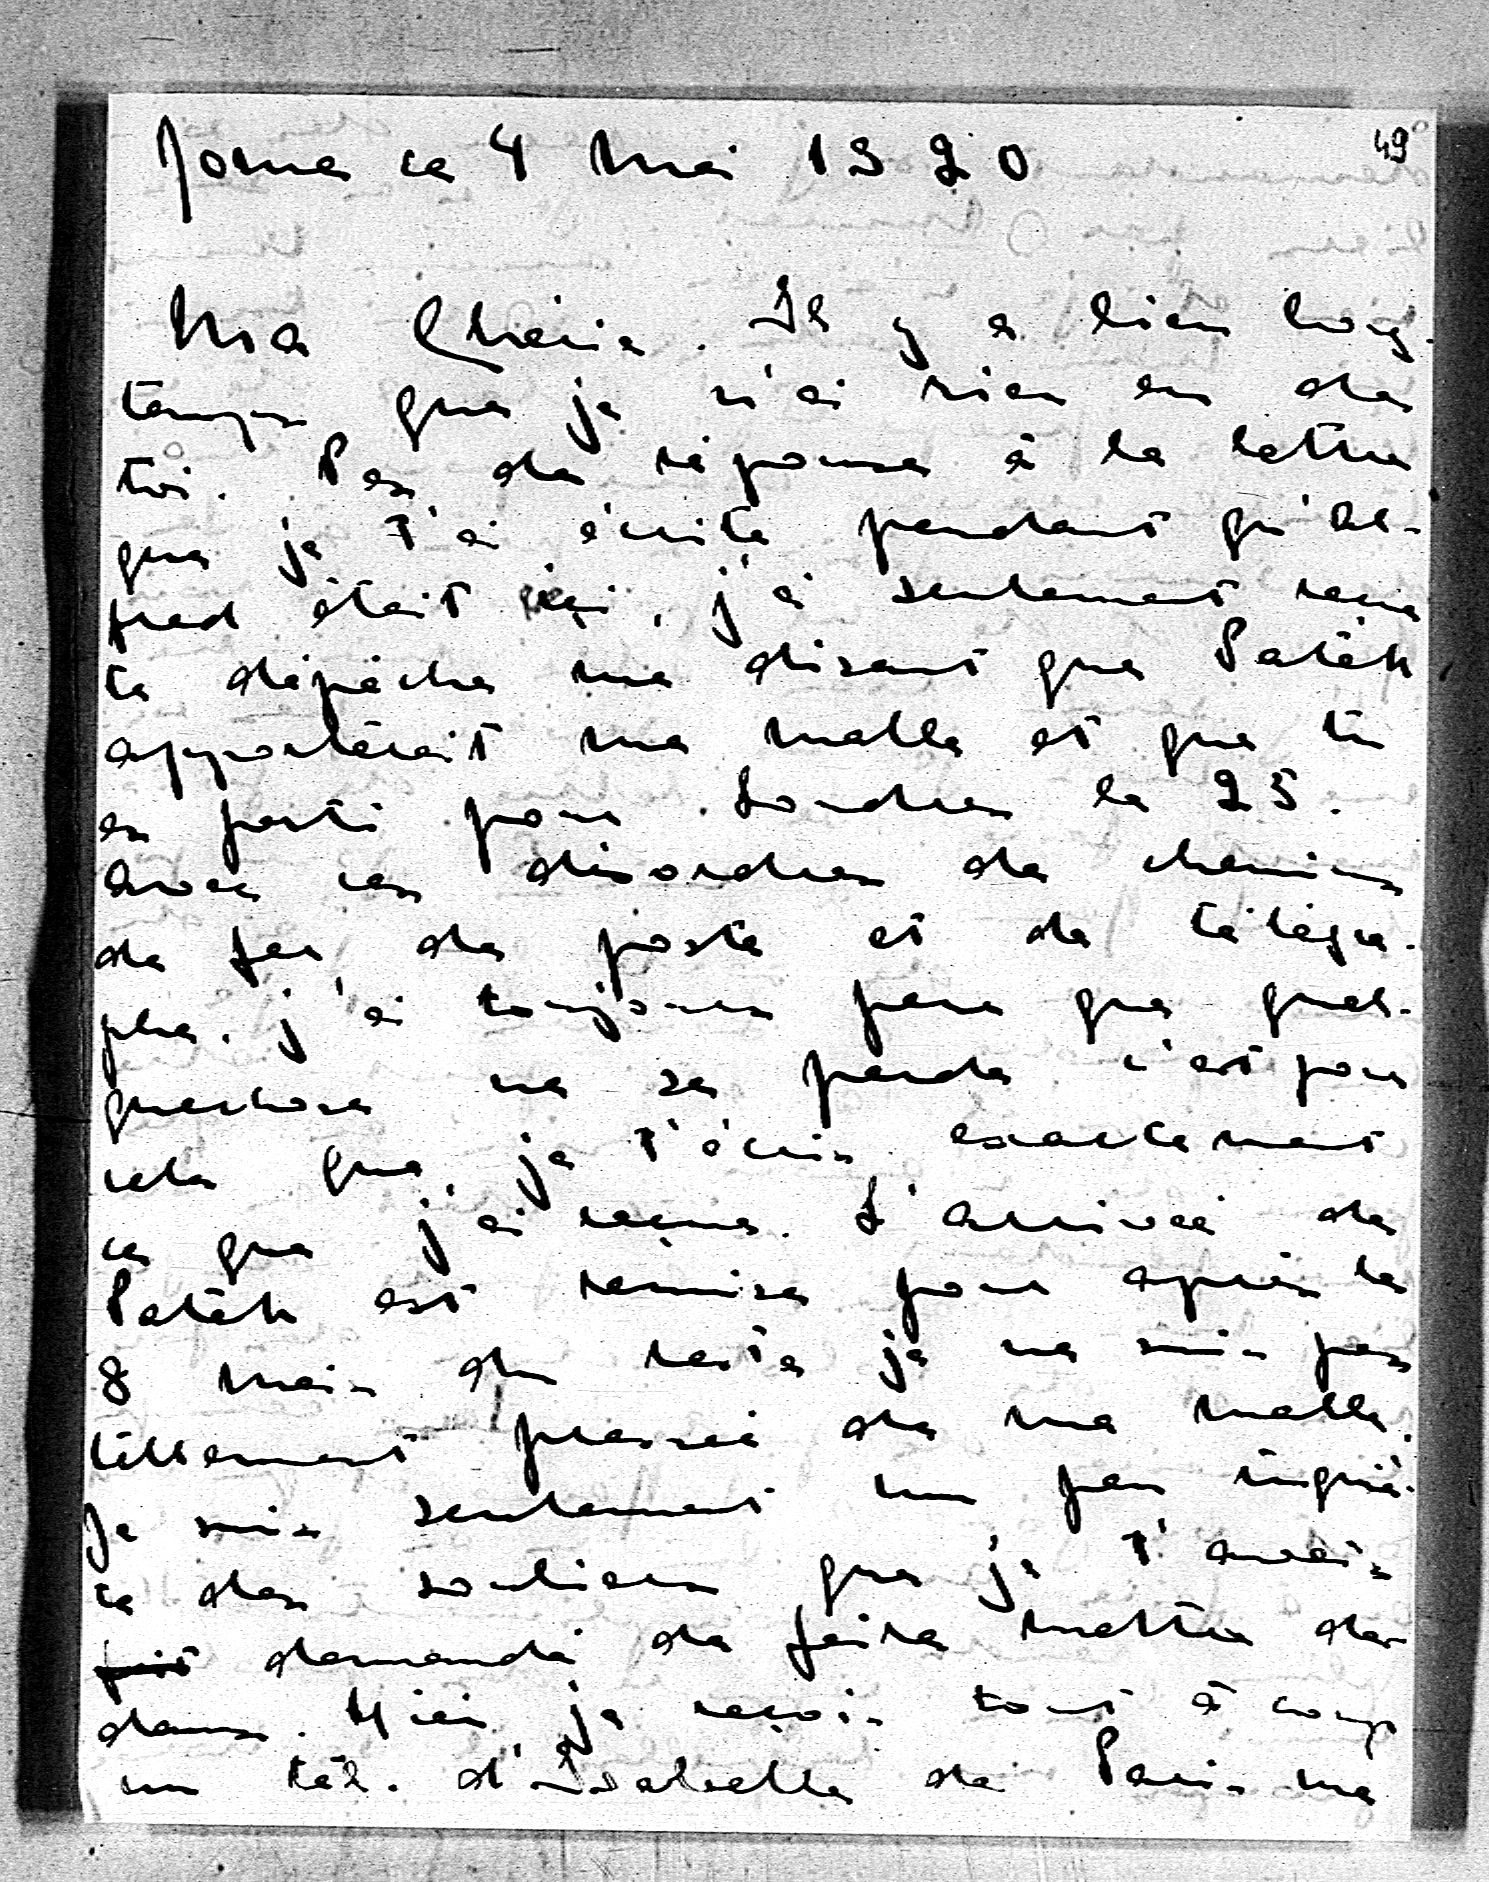 49
ce 4 Mai 1920
Ma Cherie. Il y a bien long-
temps que je n'ai rien eu de
toi. Pas de réponse à la lettre
que je t'ai écrite pendant qu'Al-
fred était ici, j'ai seulement reçu
ta dépêche me disant que Patek
apporterait ma malle et que tu
es parti pour Londres le 25.
Avec ces désordres de chemins
de fer de poste et de télégra-
phe. j'ai toujours peur que quel-
quechose ne se perde c'est pour
cela que je t'écris exactement
ce que j'ai reçue. L'arrivée de
Patek est remise pour après le
8 mais du reste je ne suis pas
tellement pressée de ma malle.
Je suis seulement un peu inquiè-
te des souliers que je t'avais
demandé de faire mettre de-
dans. Hier je reçois tout à coup
un tél. d'Isabelle de Paris me